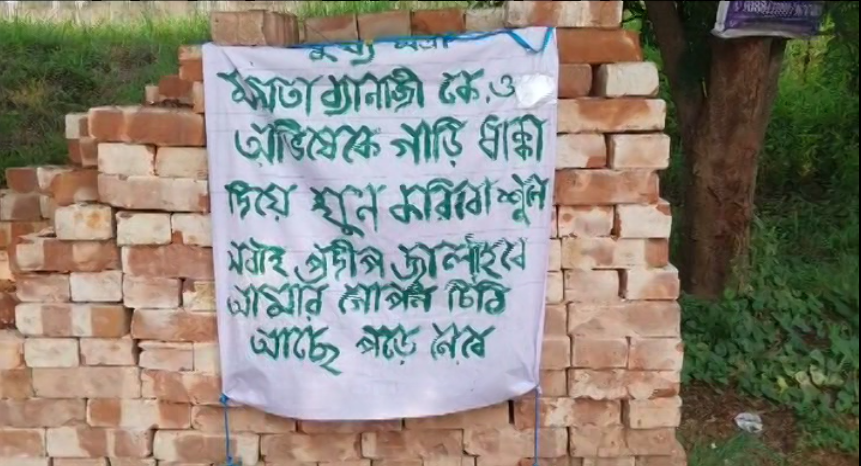 মুখ্য মন্ত্রী
মমতা ব্যানার্জী কে ও
অভিষেকে গাড়ি ধাক্কা
দিয়ে খুন করিবো শুন
সবাই প্রদীপ জ্বালাইবে
আমার গোপন চিঠি
আছে পড়ে নেবে